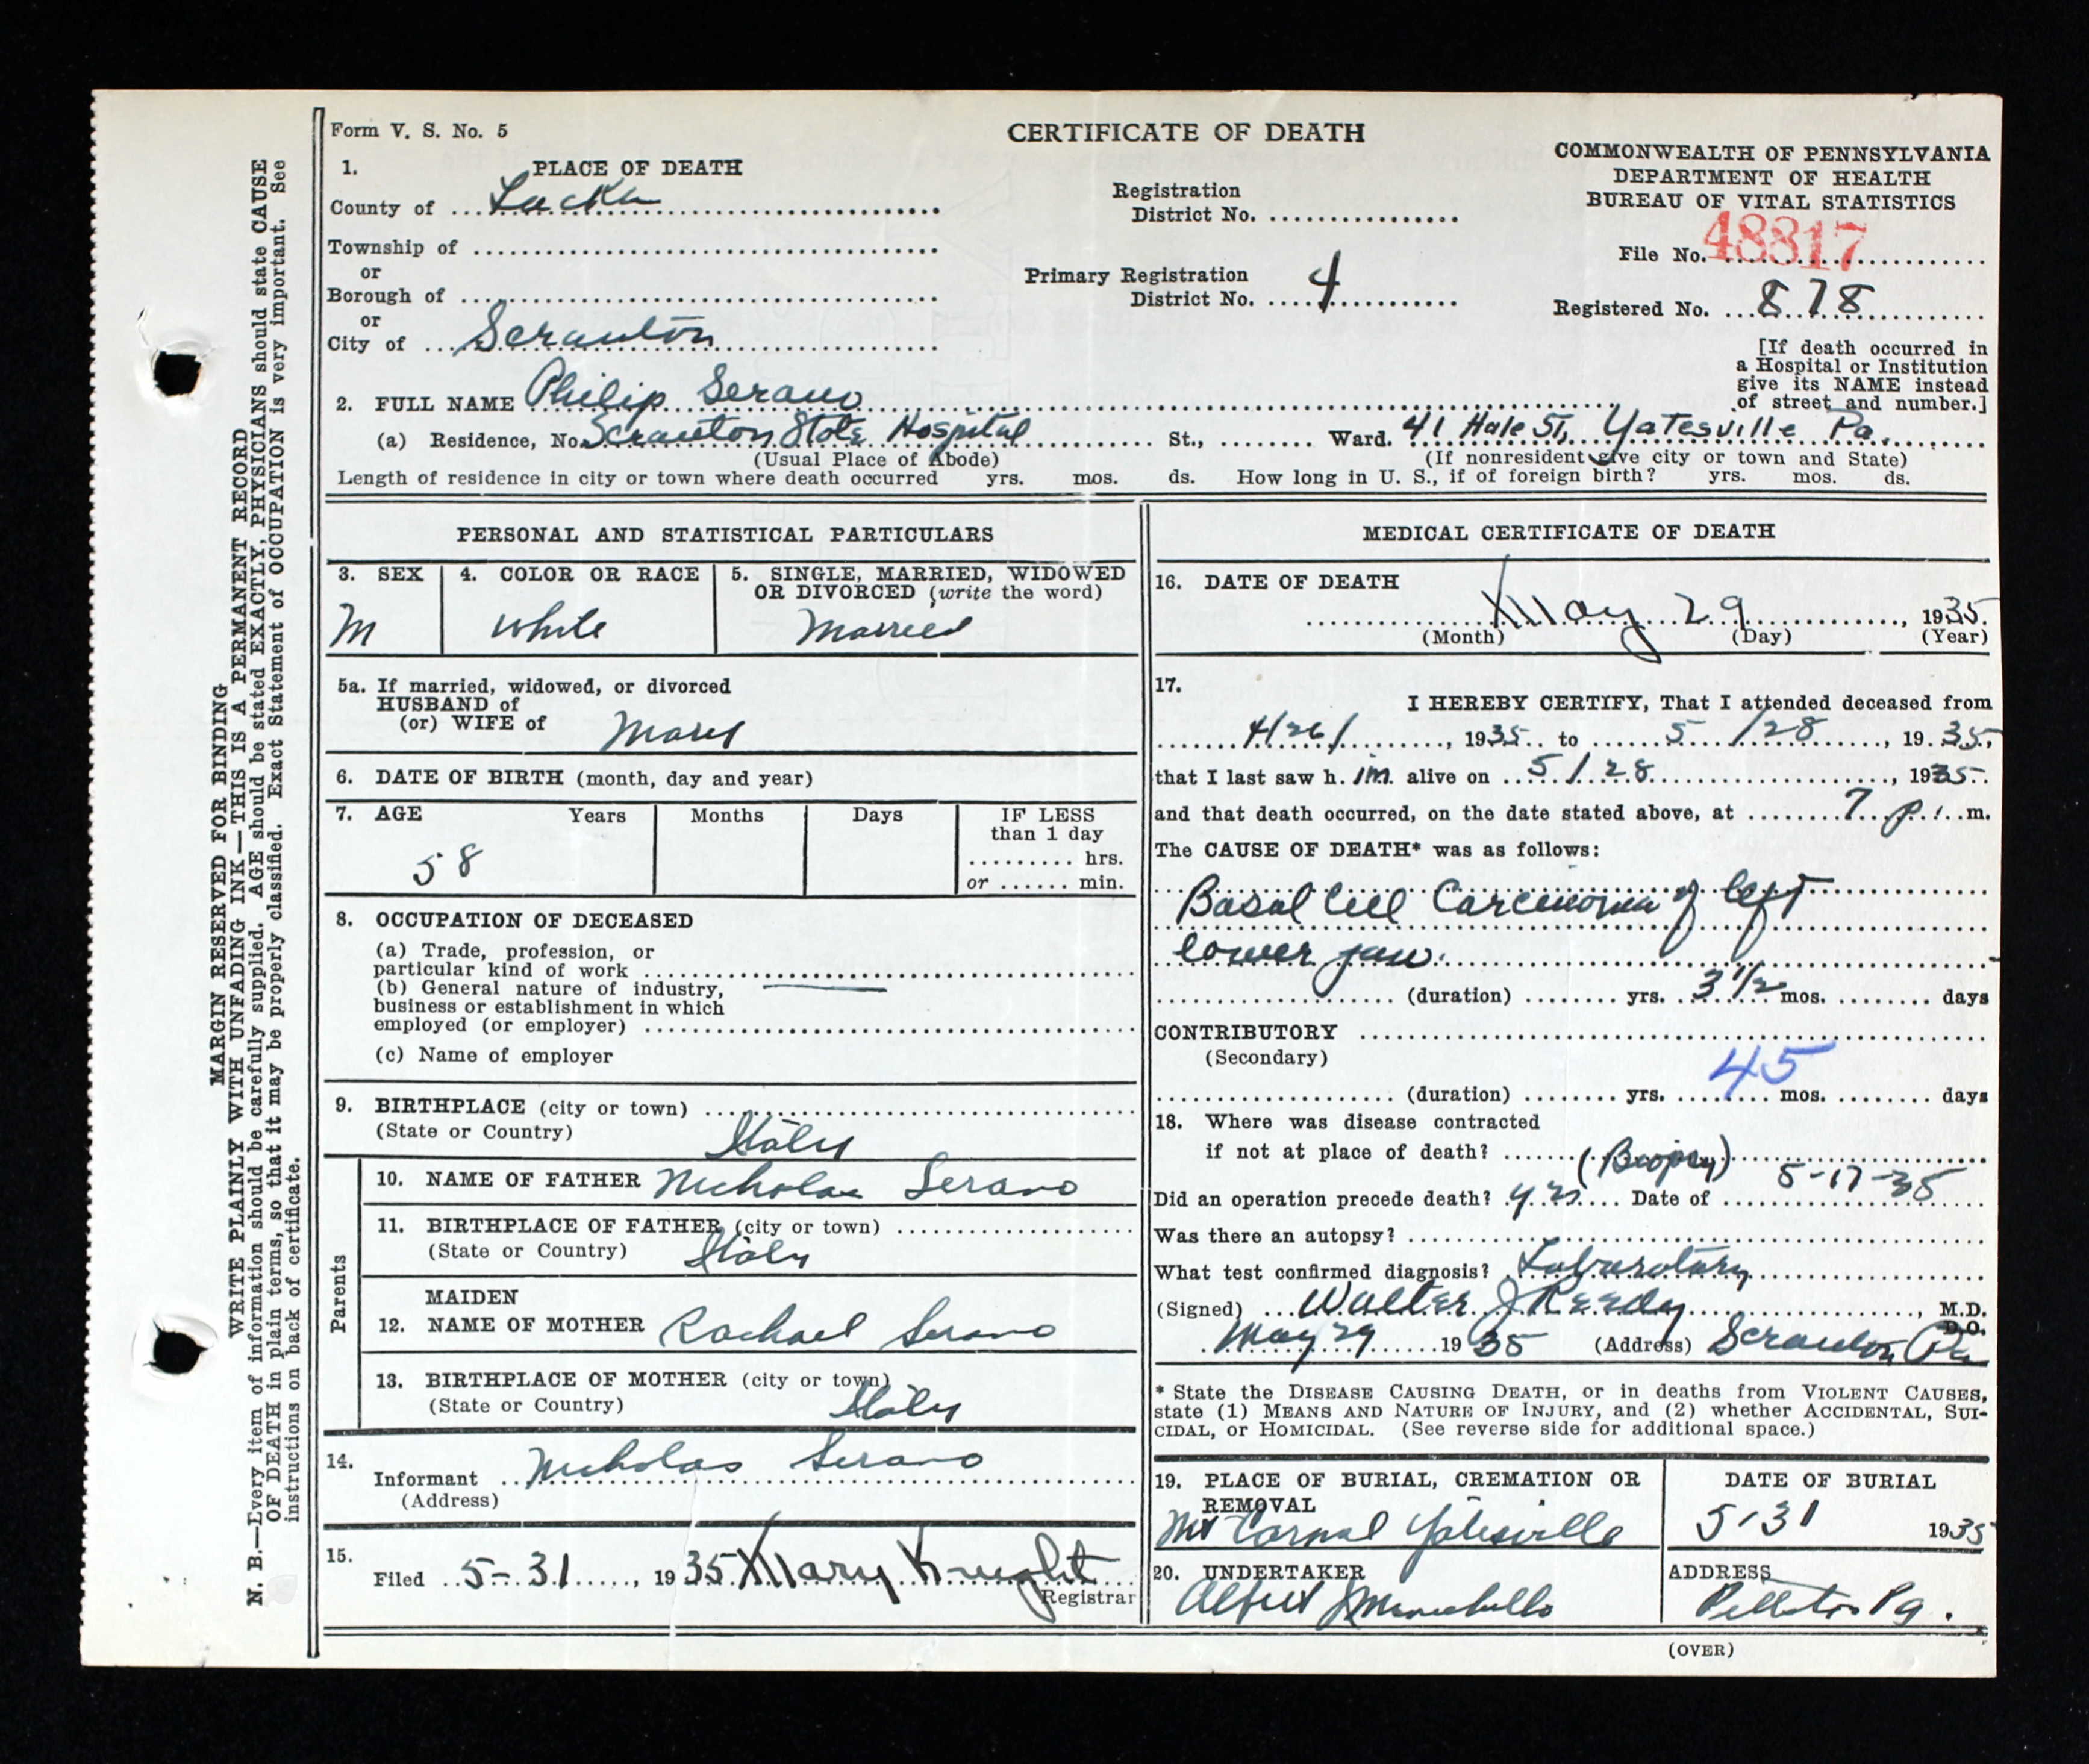 Form V. S. No. 5
CERTIFICATE OF DEATH
COMMONWEALTH OF PENNSYLVANIA
DEPARTMENT OF HEALTH
BUREAU OF VITAL STATISTICS
File No. 48817
Registered No. 878
1. PLACE OF DEATH
County of Lacka
Township of
or
Borough of
or
City of Scranton
Registration
District No.
Primary Registration
District No. 4
[If death occurred in
a Hospital or Institution
give its NAME instead
of street and number.]
2. FULL NAME Philip Serano
(a) Residence, No. Scranton State Hospital St., Ward. 41 Hale St, Yatesville Pa.
(Usual Place of Abode) (If nonresident give city or town and State)
Length of residence in city or town where death occurred yrs. mos. ds. How long in U. S., if of foreign birth? yrs. mos. ds.
PERSONAL AND STATISTICAL PARTICULARS
3. SEX
M
4. COLOR OR RACE
White
5. SINGLE, MARRIED, WIDOWED
OR DIVORCED (write the word)
Married
5a. If married, widowed, or divorced
HUSBAND of
(or) WIFE of Mary
6. DATE OF BIRTH (month, day and year)
7. AGE Years Months Days IF LESS
than 1 day
hrs.
or min.
58
8. OCCUPATION OF DECEASED
(a) Trade, profession, or
particular kind of work
(b) General nature of industry,
business or establishment in which
employed (or employer)
(c) Name of employer
9. BIRTHPLACE (city or town)
(State or Country) Italy
Parents
10. NAME OF FATHER Nicholas Serano
11. BIRTHPLACE OF FATHER (city or town)
(State or Country) Italy
MAIDEN
12. NAME OF MOTHER Rachael Serano
13. BIRTHPLACE OF MOTHER (city or town)
(State or Country) Italy
14.
Informant Nicholas Serano
(Address)
15.
Filed 5-31, 1935 Mary Knight
Registrar
MEDICAL CERTIFICATE OF DEATH
16. DATE OF DEATH
May 29, 1935
(Month) (Day) (Year)
17.
I HEREBY CERTIFY, That I attended deceased from
4/26/, 1935 to 5/28, 1935,
that I last saw him alive on 5/28, 1935
and that death occurred, on the date stated above, at 7 p. m.
The CAUSE OF DEATH* was as follows:
Basal Cell Carcinoma of left
lower jaw.
(duration) yrs. 3 1/2 mos. days
CONTRIBUTORY
(Secondary)
45
(duration) yrs. mos. days
18. Where was disease contracted
if not at place of death?
(Biopsy)
Did an operation precede death? yes Date of 5-17-35
Was there an autopsy?
What test confirmed diagnosis? Laboratory
(Signed) Walter J Reedy, M.D.
D.O.
May 29 1935 (Address) Scranton Pa
* State the DISEASE CAUSING DEATH, or in deaths from VIOLENT CAUSES,
state (1) MEANS AND NATURE OF INJURY, and (2) whether ACCIDENTAL, SUI-
CIDAL, or HOMICIDAL. (See reverse side for additional space.)
19. PLACE OF BURIAL, CREMATION OR
REMOVAL
Mt Carmel Yatesville
DATE OF BURIAL
5-31 1935
20. UNDERTAKER
Alfred J
ADDRESS
Pittston Pa.
(OVER)
MARGIN RESERVED FOR BINDING
WRITE PLAINLY WITH UNFADING INK—THIS IS A PERMANENT RECORD
N. B.—Every item of information should be carefully supplied. AGE should be stated EXACTLY, PHYSICIANS should state CAUSE
OF DEATH in plain terms, so that it may be properly classified. Exact Statement of OCCUPATION is very important. See
instructions on back of certificate.